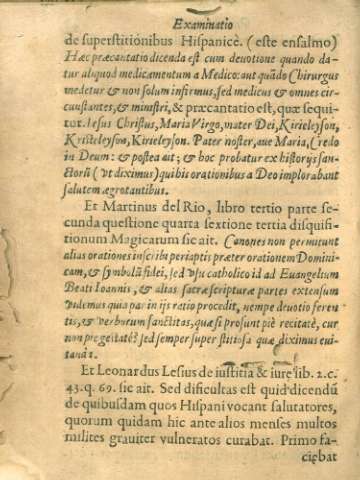 Examinatio
de superstitionibus Hispanicè. (este ensalmo)
Hæc præcantatio dicenda est cum deuotione quando da-
tur aliquod medicamentum a Medico: aut quãdo Chirurgus
medetur & non solum infirmus, sed medicus & omnes cir-
cunstantes, & ministri, & præcantatio est, quæ sequi-
tur. Iesus Christus, Maria Virgo, mater Dei, Kirieleyson,
Kristeleyson, Kirieleyson. Pater noster, aue Maria, Credo
in Deum: & postea ait; & hoc probatur ex historijs san-
ctorũ (vt diximus) quibis orationibus a Deo implorabant
salutem ægrotantibus.
Et Martinus del Rio, libro tertio parte se-
cunda questione quarta sextione tertia disquisi-
tionum Magicarum sic ait. Canones non permitunt
alias orationes inscribi periaptis præter orationem Domini-
cam, & symbolũ fidei, sed vsu catholico id ad Euangelium
Beati Ioannis, & alias sacræ scripturæ partes extensum
videmus quia par in ijs ratio procedit, nempe deuotio feren
tis, & verborum sanctitas, quæ si prosunt piè recitatè, cur
non piè gestatè? sed semper superstitiosa quæ diximus eui-
tanda.
Et Leonardus Lesius de iustitia & iure lib. 2. c.
43. q. 69. sic ait. Sed dificultas est quid dicendũ
de quibusdam quos Hispani vocant salutatores,
quorum quidam hic ante alios menses multos
milites grauiter vulneratos curabat. Primo fa-
ciebat